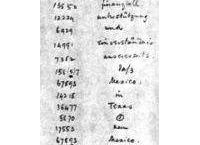 13850 finanziell
12224 unterstützung
6929 und
14991 einverständnis
7382 unsererseits.
158(5)7 Da/3
67893 Mexico.
14218 in
36477 Texas
5870 ⊙
17553 neu
67893 Mexico.